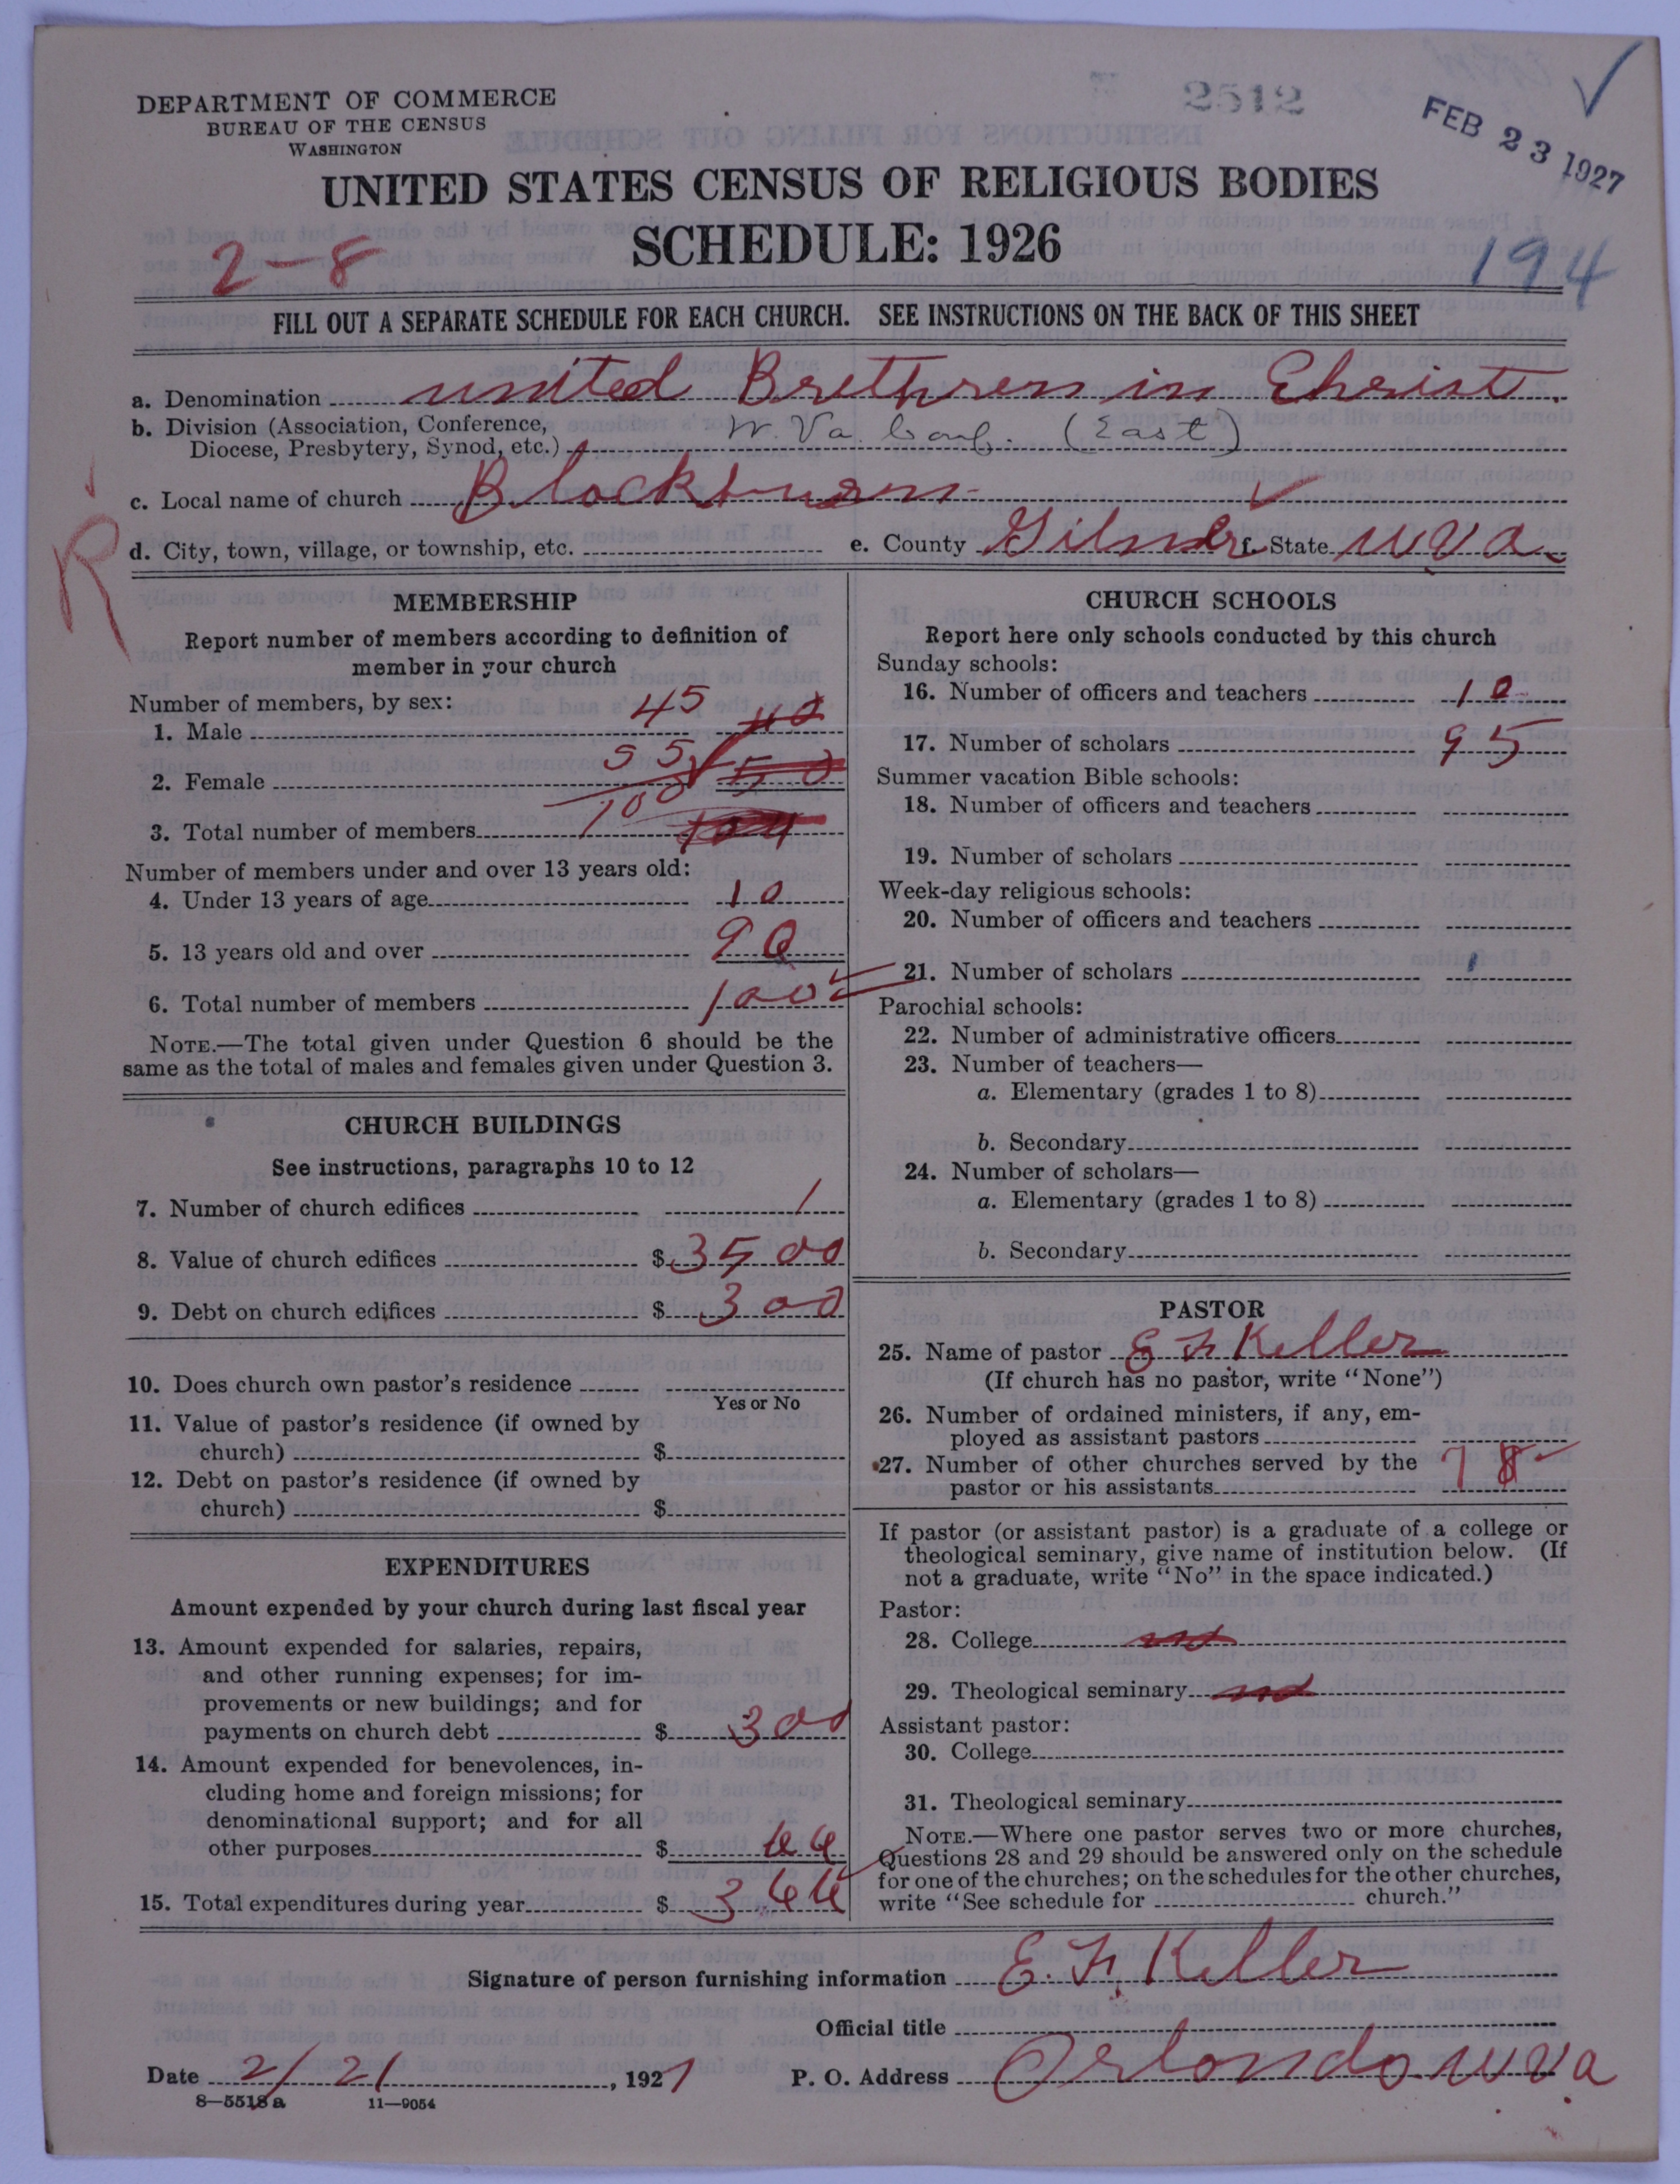 DEPARTMENT OF COMMERCE
BUREAU OF THE CENSUS
WASHINGTON
2512
FEB 23 1927
UNITED STATES CENSUS OF RELIGIOUS BODIES
SCHEDULE: 1926
2-8
194
FILL OUT A SEPARATE SCHEDULE FOR EACH CHURCH. SEE INSTRUCTIONS ON THE BACK OF THIS SHEET
a. Denomination united Brethren in Christ.
b. Division (Association, Conference, Diocese, Presbytery, Synod, etc.) W. Va. Conf. (East)
c. Local name of church Blackburn
R
d. City, town, village, or township, etc. e. County Gilmer f. State W Va.
MEMBERSHIP
Report number of members according to definition of
member in your church
Number of members, by sex:
1. Male 45
2. Female 55
3. Total number of members 100
Number of members under and over 13 years old:
4. Under 13 years of age 10
5. 13 years old and over 90
6. Total number of members 100
NOTE.—The total given under Question 6 should be the
same as the total of males and females given under Question 3.
CHURCH BUILDINGS
See instructions, paragraphs 10 to 12
7. Number of church edifices 1
8. Value of church edifices $ 3500
9. Debt on church edifices $ 300
10. Does church own pastor's residence
Yes or No
11. Value of pastor's residence (if owned by
church) $
12. Debt on pastor's residence (if owned by
church) $
EXPENDITURES
Amount expended by your church during last fiscal year
13. Amount expended for salaries, repairs,
and other running expenses; for im-
provements or new buildings; and for
payments on church debt $ 300
14. Amount expended for benevolences, in-
cluding home and foreign missions; for
denominational support; and for all
other purposes $ 66
15. Total expenditures during year $ 366
CHURCH SCHOOLS
Report here only schools conducted by this church
Sunday schools:
16. Number of officers and teachers 10
17. Number of scholars 95
Summer vacation Bible schools:
18. Number of officers and teachers
19. Number of scholars
Week-day religious schools:
20. Number of officers and teachers
21. Number of scholars
Parochial schools:
22. Number of administrative officers
23. Number of teachers—
a. Elementary (grades 1 to 8)
b. Secondary
24. Number of scholars—
a. Elementary (grades 1 to 8)
b. Secondary
PASTOR
25. Name of pastor E F. Keller
(If church has no pastor, write "None")
26. Number of ordained ministers, if any, em-
ployed as assistant pastors
27. Number of other churches served by the
pastor or his assistants 7 8
If pastor (or assistant pastor) is a graduate of a college or
theological seminary, give name of institution below. (If
not a graduate, write "No" in the space indicated.)
Pastor:
28. College no
29. Theological seminary no
Assistant pastor:
30. College
31. Theological seminary
NOTE.—Where one pastor serves two or more churches,
Questions 28 and 29 should be answered only on the schedule
for one of the churches; on the schedules for the other churches,
write "See schedule for church."
Signature of person furnishing information E. F. Keller
Official title
Date 2/21, 1927 P. O. Address Orlando W Va
8—5518 a 11—9054